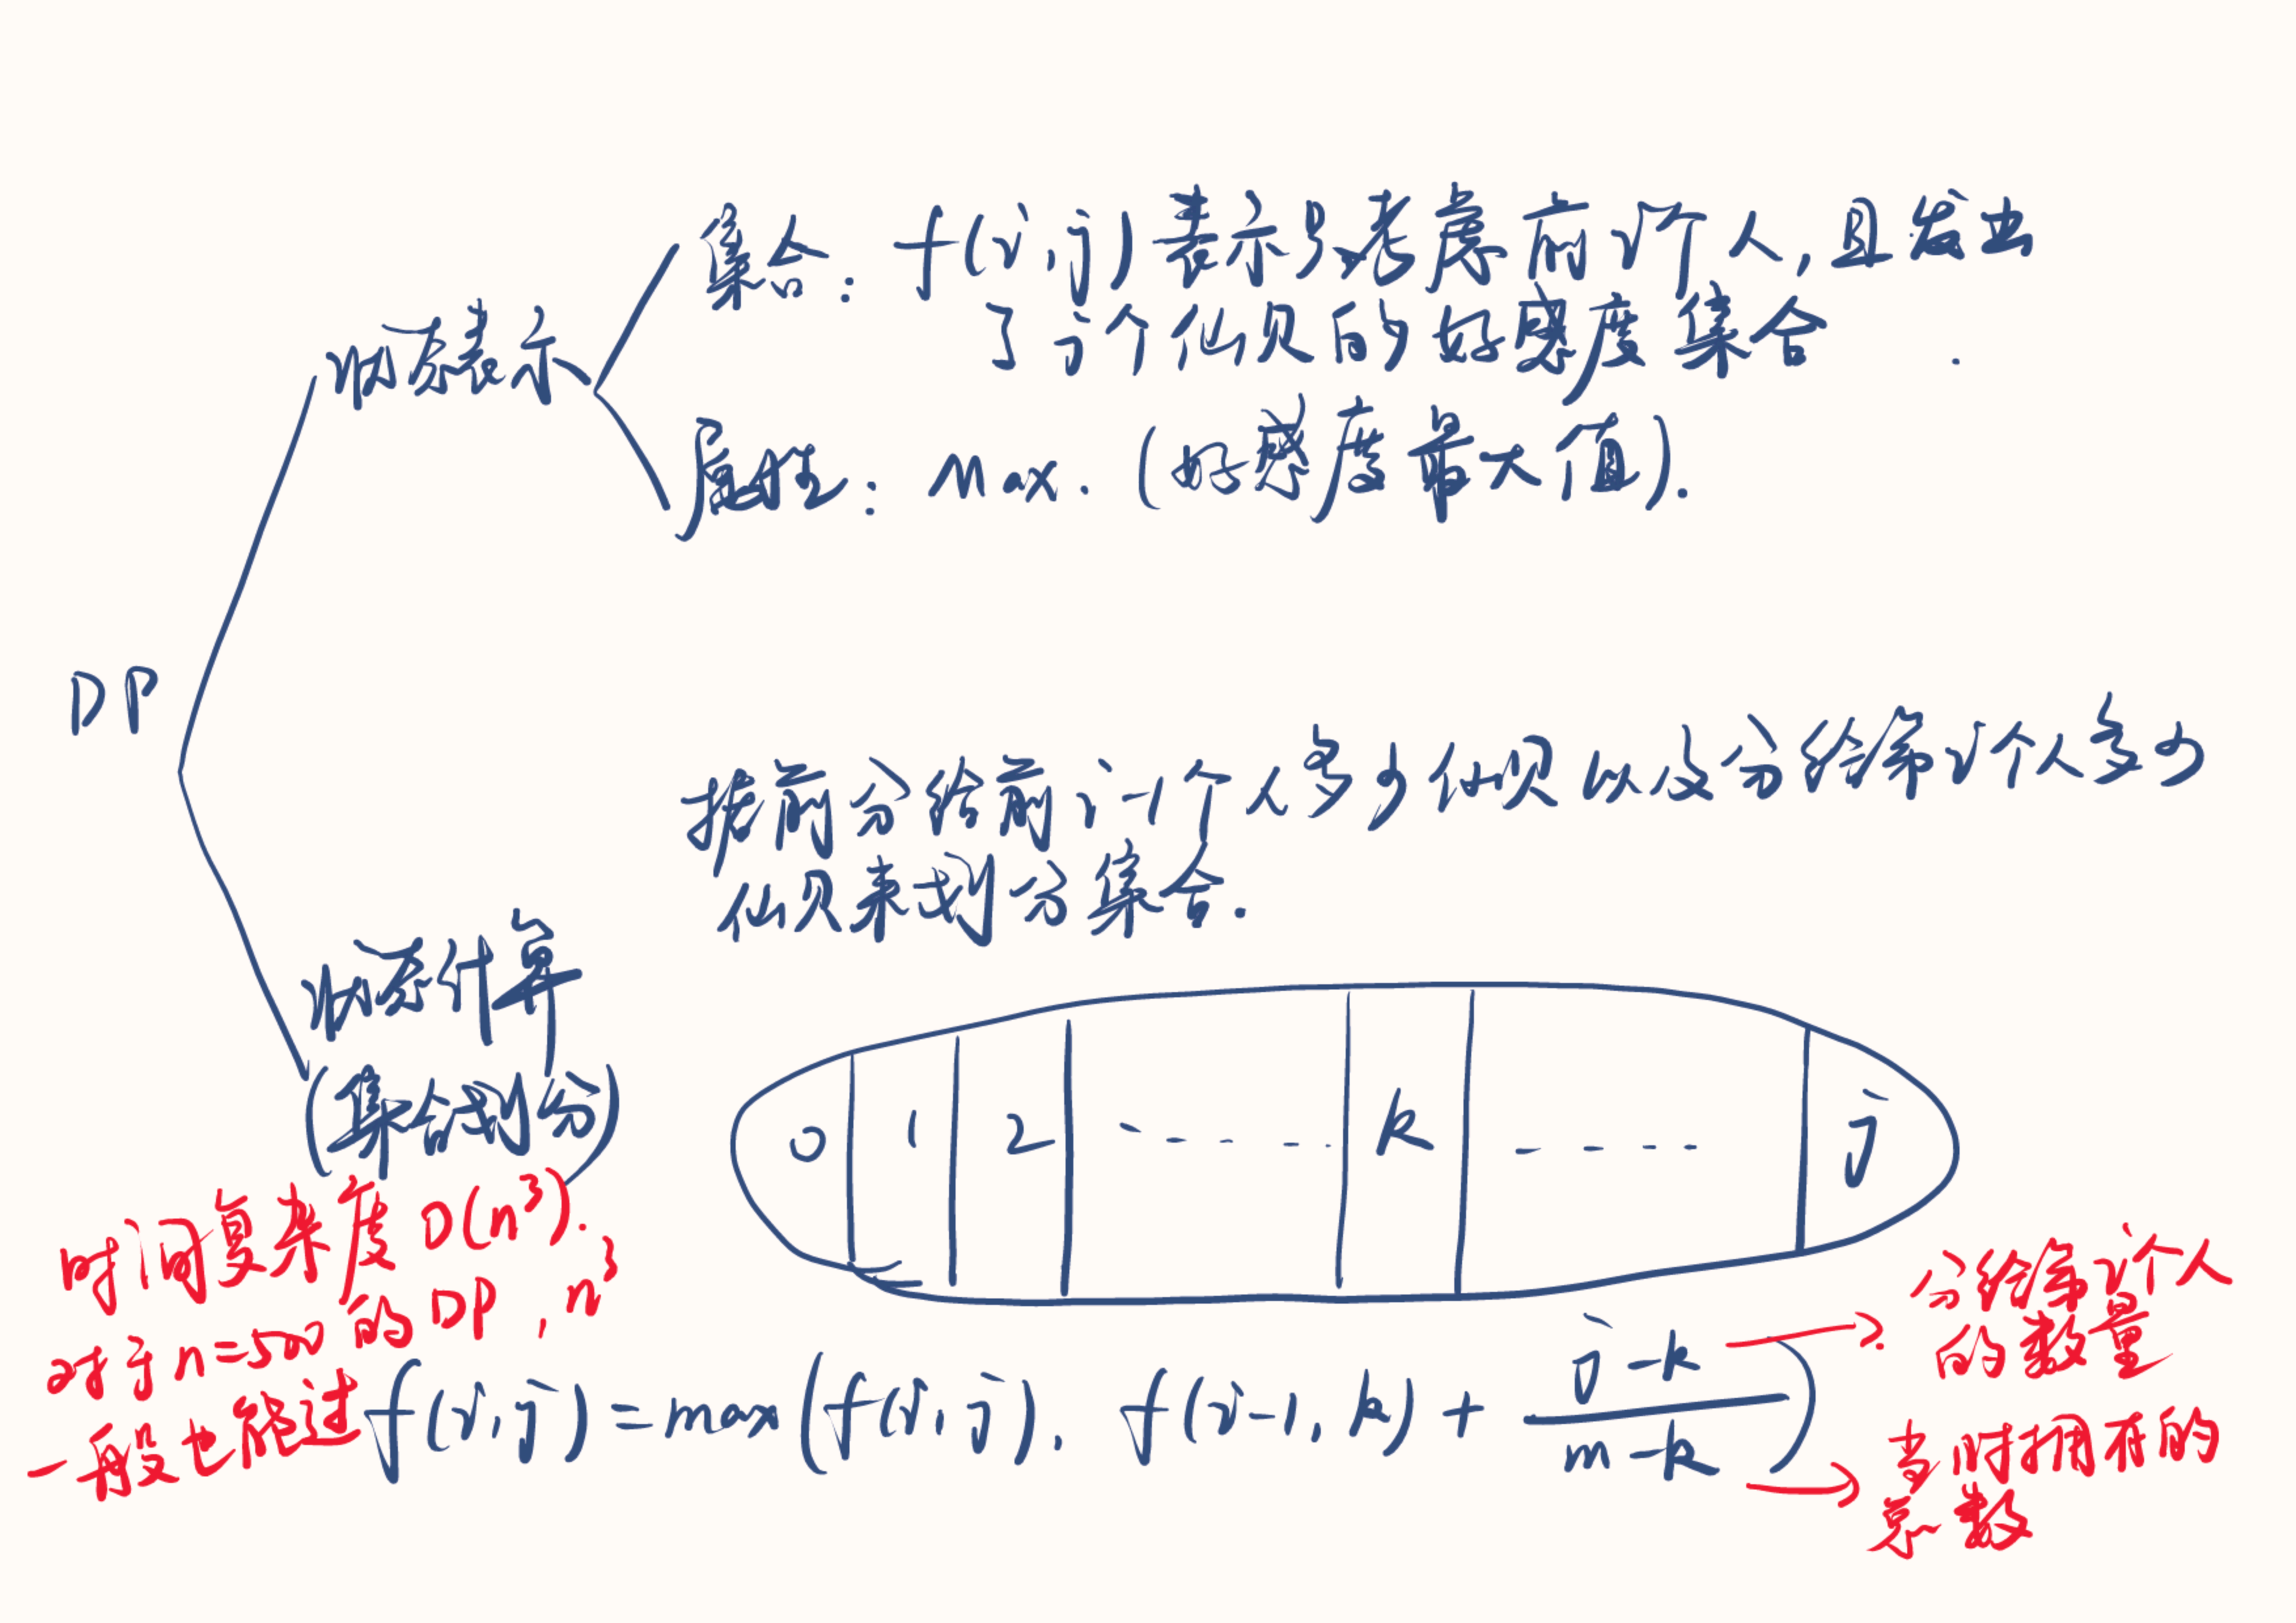 DP
状态表示
集合: f(i,j) 表示只考虑前i个人,且发出
了j个仙贝的好感度集合.
属性: Max. (好感度最大值).
据前分给前i-1个人多少仙贝以及分给第i个人多少
仙贝来划分集合.
状态计算
(集合划分)
0 1 2 ----- k ----- j
时间复杂度 O(n³).
对于n=500的DP, n³
一般也能过
f(i,j) = max(f(i,j), f(i-1,k) + (j-k)/(m-k))
分给第i个人
的数量
当时拥有的
总数